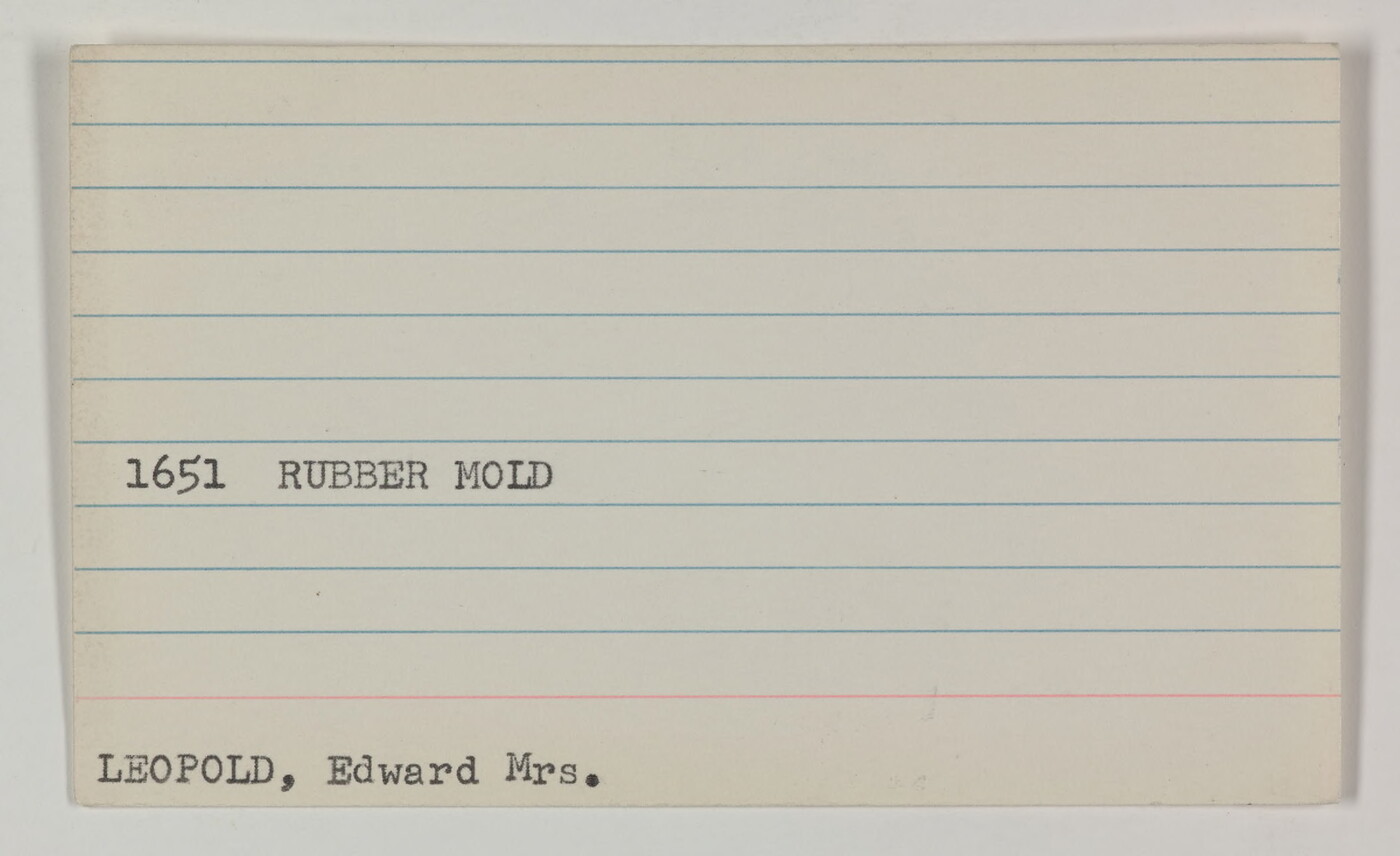 1651 RUBBER MOLD
LEOPOLD, Edward Mrs.